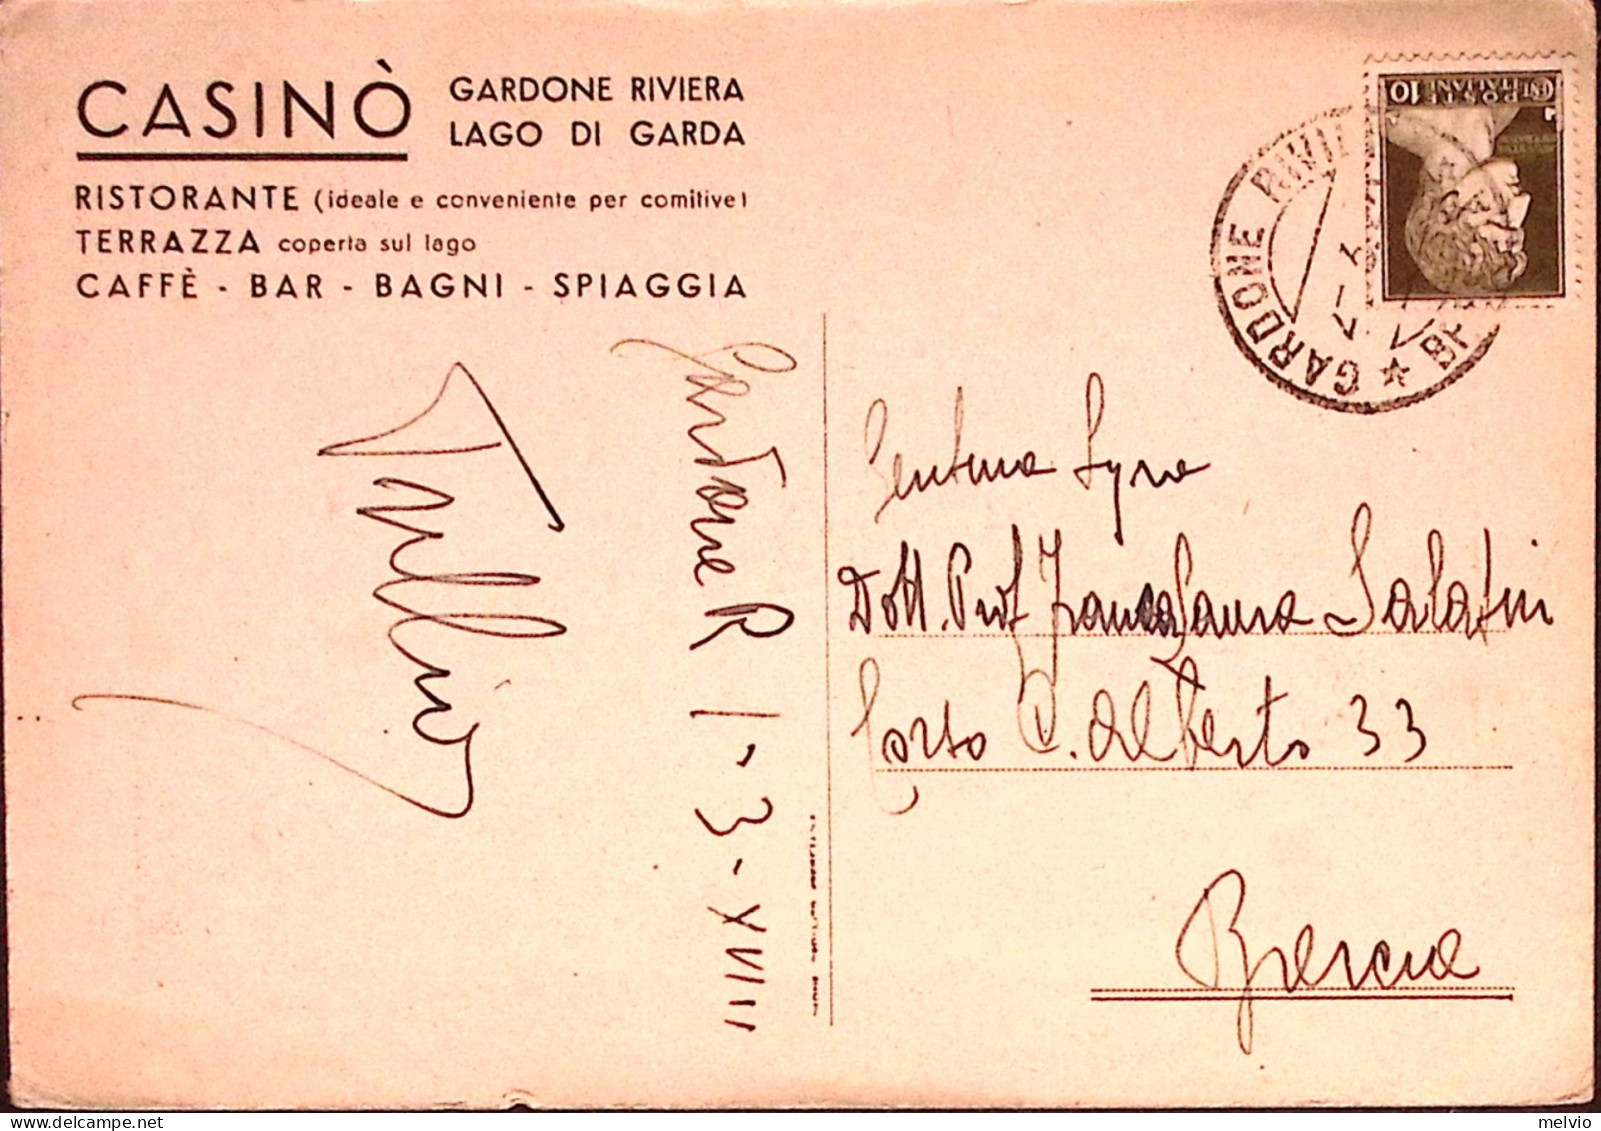 CASINÒ
GARDONE RIVIERA
LAGO DI GARDA
RISTORANTE (ideale e conveniente per comitive)
TERRAZZA coperta sul lago
CAFFÈ - BAR - BAGNI - SPIAGGIA
POSTE
ITALIANE
10
GARDONE RIVI
Gardone R 1-3-XVIII
Tullio
Dott. Prof
Corso C. Alberto 33
Brescia
melvio